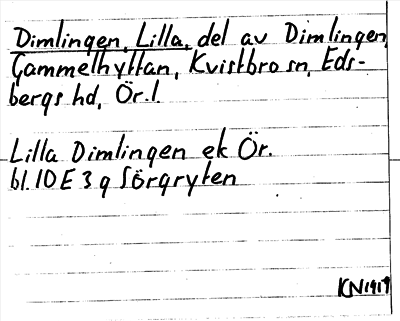 Dimlingen, Lilla, del av Dimlingen,
Gammelhyttan, Kvistbro sn, Eds-
bergs hd, Ör.l.
Lilla Dimlingen ek Ör.
bl. 10 E 3 g Sörgryten
KN1919